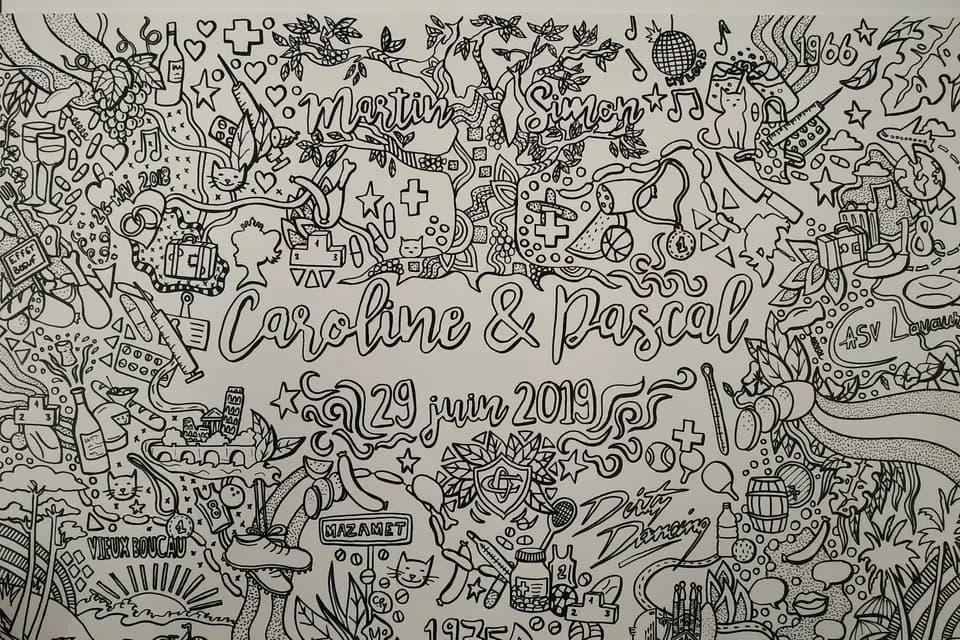 1966
Martin
Simon
26 MAI 2018
EFFET
BOEUF
Caroline & Pascal
ASV Lavaur
29 juin 2019
1
2 3
VIEUX BOUCAU
MAZAMET
Dirty
Dancing
1975